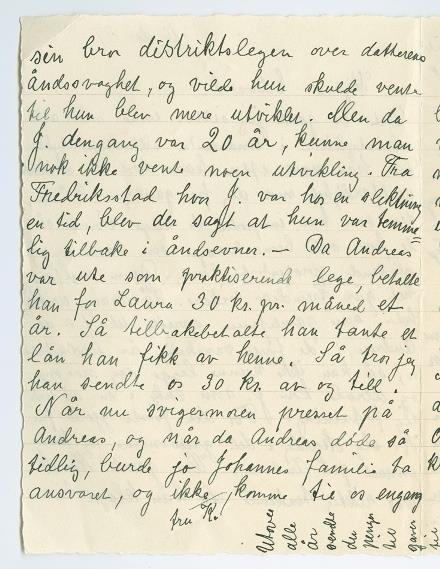 sin bror distriktslegen over datterens
åndssvaghet, og vilde hun skulde vente
til hun blev mere utviklet. Men da
J. dengang var 20 år, kunne man
nok ikke vente noen utvikling. Fra
Fredriksstad hvor J. var hos en slektning
en tid, blev der sagt at hun var temme=
lig tilbake i åndsevner. — Da Andreas
var ute som praktiserende lege, betalte
han for Laura 30 kr. pr. måned et
år. Så tilbakebetalte han tante et
lån han fikk av henne. Så tror jeg
han sendte os 30 kr. av og til.
Når nu svigermoren presset på
Andreas, og når da Andreas døde så
tidlig, burde jo Johannes familie ta
ansvaret, og ikke komme til os engang
fru K.
Utover
alle
år
sendte
du
penger
til
gaver
til